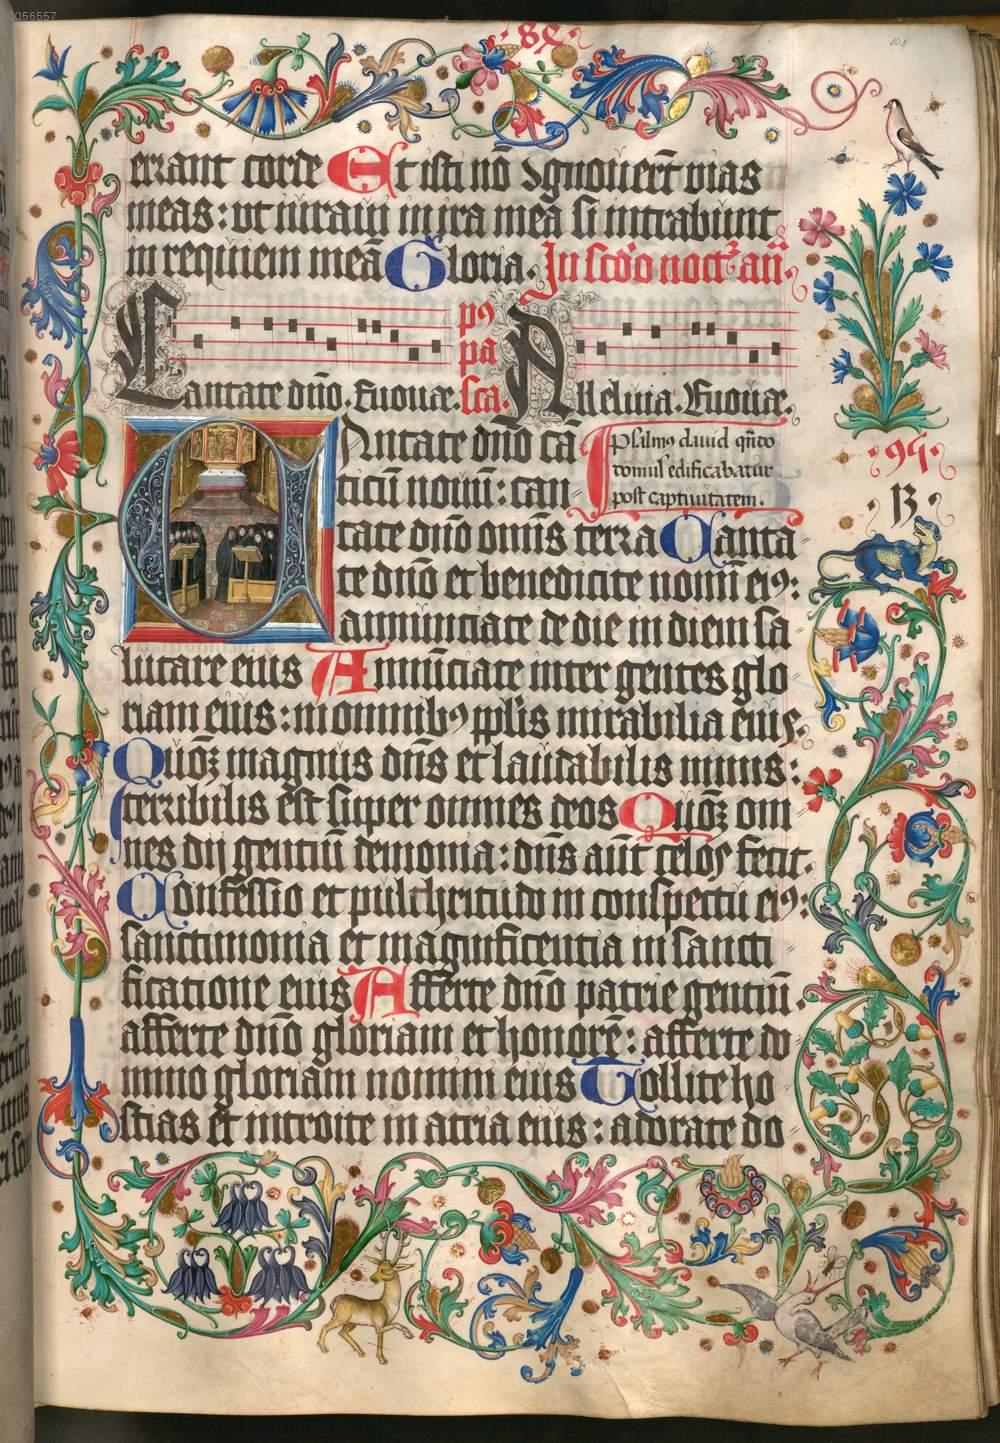 056557
104
·89·
errant corde Et isti nō ↄgnouert̄ vias
meas: vt iuraui in ira mea si intrabunt
in requiem meā Gloria. In scd̄o noct̄ añ.
Cantate dn̄o. Euouae.
pꝰ
pa
sca.
Alleluia. Euouae.
Psalmꝰ dauid qn̄to
tomus edificabatur
post captiuitatem.
·95·
·B·
CAntate dn̄o cā
ticū nouū: can
tate dn̄o omīs terra Cantā
te dn̄o et benedicite nomī eiꝰ:
annunciate de die in diem sa
lutare eius Annūciate inter gentes glo
riam eius: in omnibꝰ ppl̄is mirabilia eius.
Quōꝝ magnus dn̄s et laudabilis nimis:
terribilis est super omnes deos Quōꝝ om
nes dij gentiū demonia: dn̄s aūt celos fecit.
Confessio et pulchritudo in conspectū eiꝰ:
sanctimonia et magnificentia in sancti
ficatione eius Afferte dn̄o patrie gentiū.
afferte dn̄o gloriam et honorē: afferte do
mino gloriam nomini eius Tollite ho
stias et introite in atria eius: adorate do